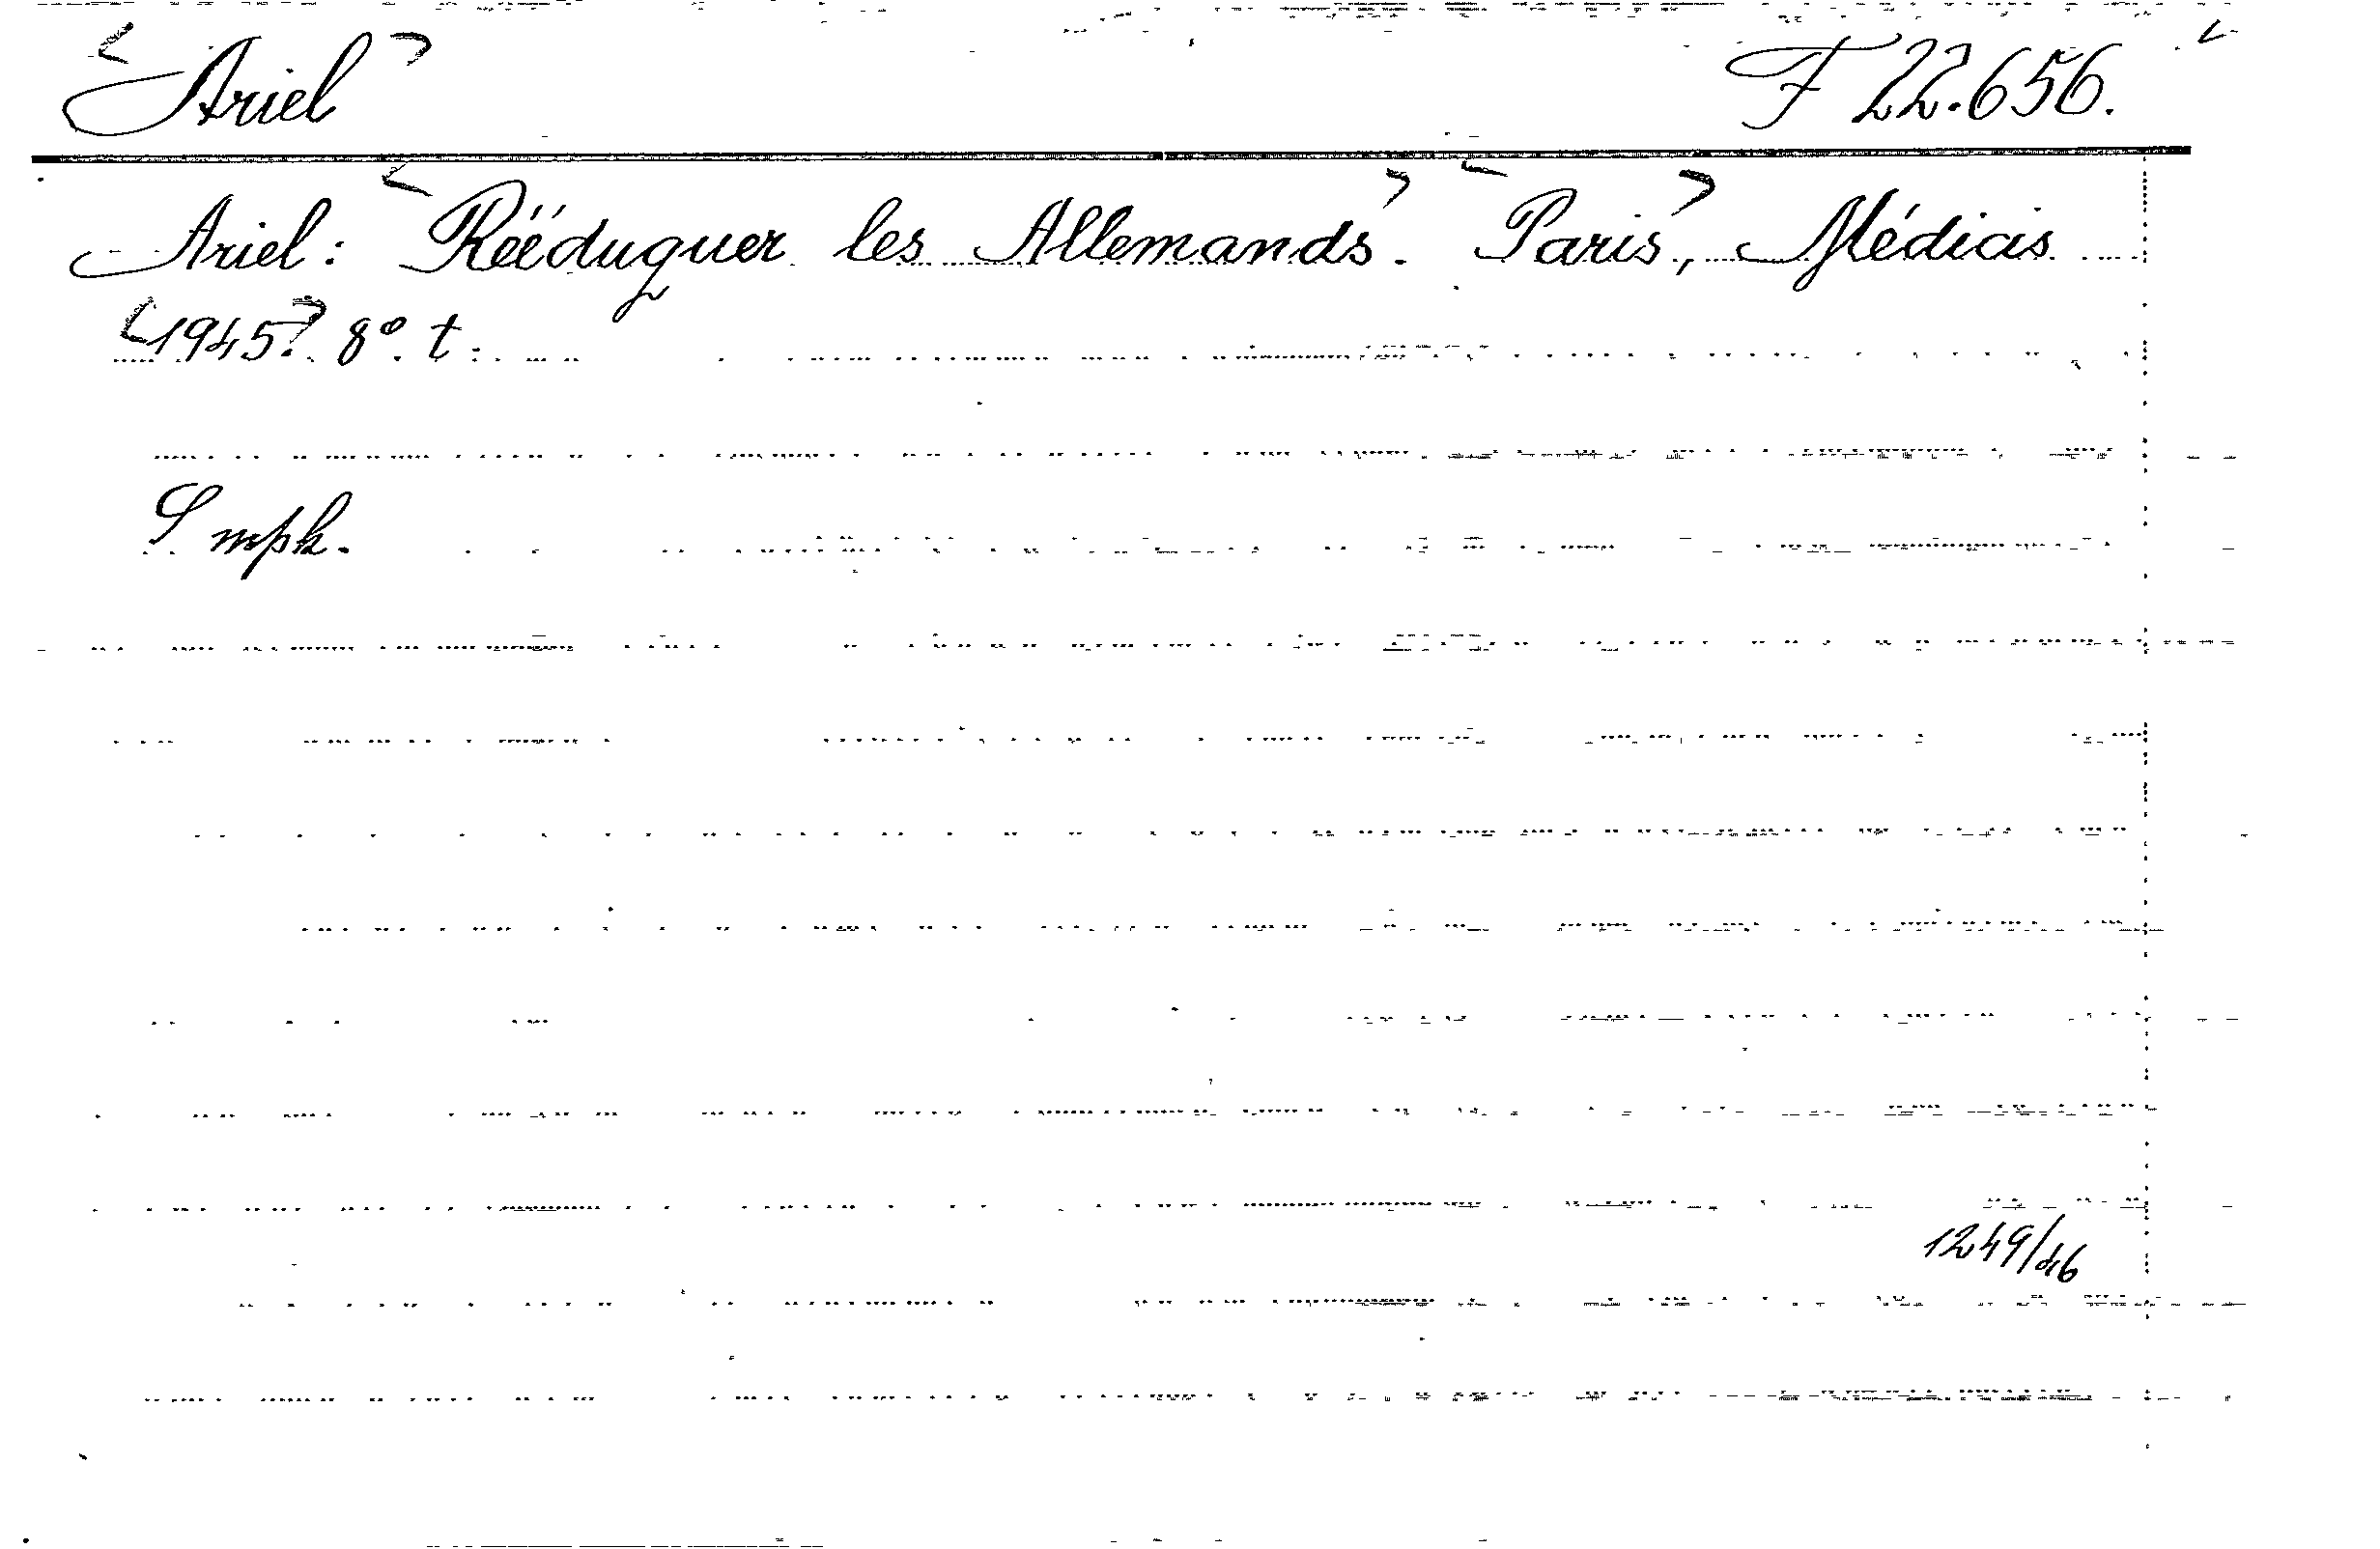 <Ariel> F 22.656.
Ariel: <Rééduquer les Allemands>. <Paris>, Médicis
<1945?>. 8°. t.
S mpk.
1249/46